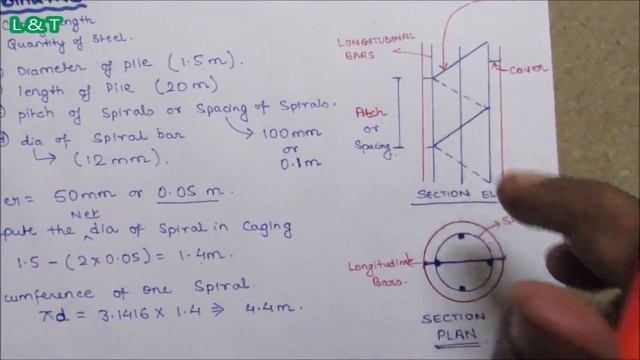 L & T
Length
Quantity of Steel.
Diameter of pile (1.5m)
length of Pile (20m)
pitch of Spirals or Spacing of Spirals.
100mm
or
0.1m
dia of Spiral bar
(12mm).
= 50mm or 0.05 m.
Net
the dia of Spiral in Caging
1.5 - (2 x 0.05) = 1.4m.
of one Spiral.
πd = 3.1416 x 1.4 ⇒ 4.4m.
LONGITUDINAL
BARS
COVER
Pitch
or
Spacing.
SECTION EL
Longitudinal
Bars.
SECTION
PLAN